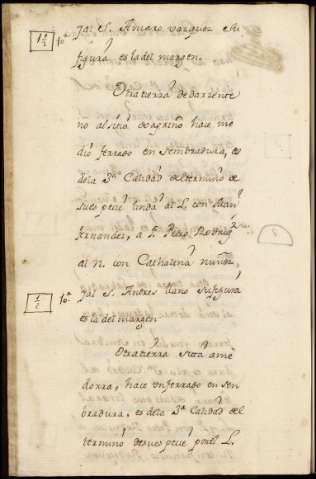 Jal S. Amaro vazquez su
figura, es la del margen.
Otra tierra de dariente
no al sitio de agrino hace me
dio ferrado en sembradura, es
dela 3ª Calidad del termino de
su especie linda al L. con Juan
fernandez, a P. Pedro Rodrig.
al N. con Cathalina nuñez,
10ª Jal S. Andres llano su figura
es la del margen
Otra tierra sita ame
dorra, hace un ferrado en sen
bradura, es dela 3ª Calidad del
termino de su especie por el L.